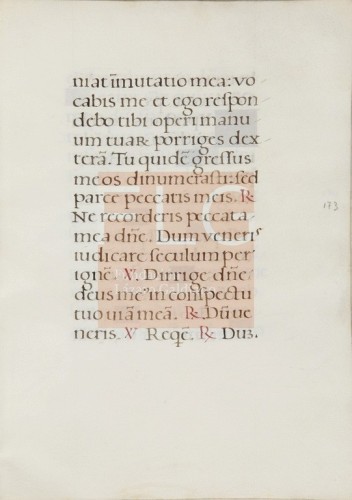 niat īmutatio mea: vo
cabis me et ego respon
debo tibi operi manu
um tuaꝝ porriges dex
terā. Tu quidē gressus
meos dinumerasti: sed
parce peccatis meis. ℟
Ne recorderis peccata
mea dn̄e. Dum veneris
iudicare seculum per
ignē. ℣. Dirrige dn̄e
deus me⁹ in conspectu
tuo viā meā. ℟. Dū ve
neris. ℣ Reqē. ℟ Duꝫ.
173